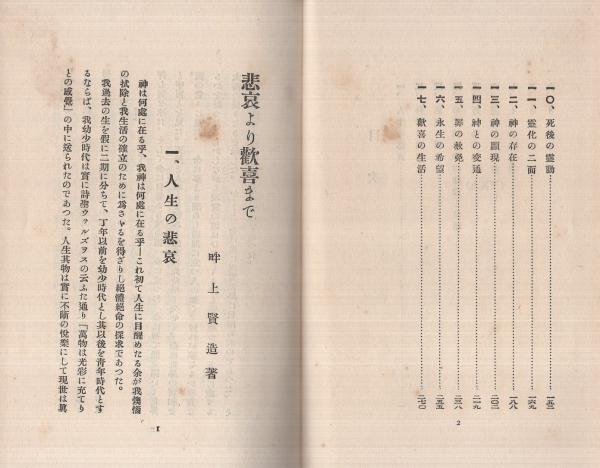 一〇、死後の靈動……一五三
一一、靈化の二面……一六九
一二、神の存在……一八八
一三、神の顯現……二〇二
一四、神との交通……二一九
一五、罪の赦免……二三八
一六、永生の希望……二五五
一七、歡喜の生活……二七〇
2
悲哀より歡喜まで
畔上賢造著
一、人生の悲哀
神は何處に在る乎、我神は何處に在る乎─これ初て人生に目醒めたる余が我懊惱
の拭除と我生活の確立のために爲さゞるを得ざりし絕體絕命の探求であつた。
我過去の生を假に二期に分ちて、丁年以前を幼少時代とし其以後を青年時代とす
るならば、我幼少時代は實に詩聖ウァルズヲスの云ふた通り『萬物は光彩に充てり
との感覺』の中に送られたのであつた。人生其物は實に不斷の悅樂にして現世は眞
1